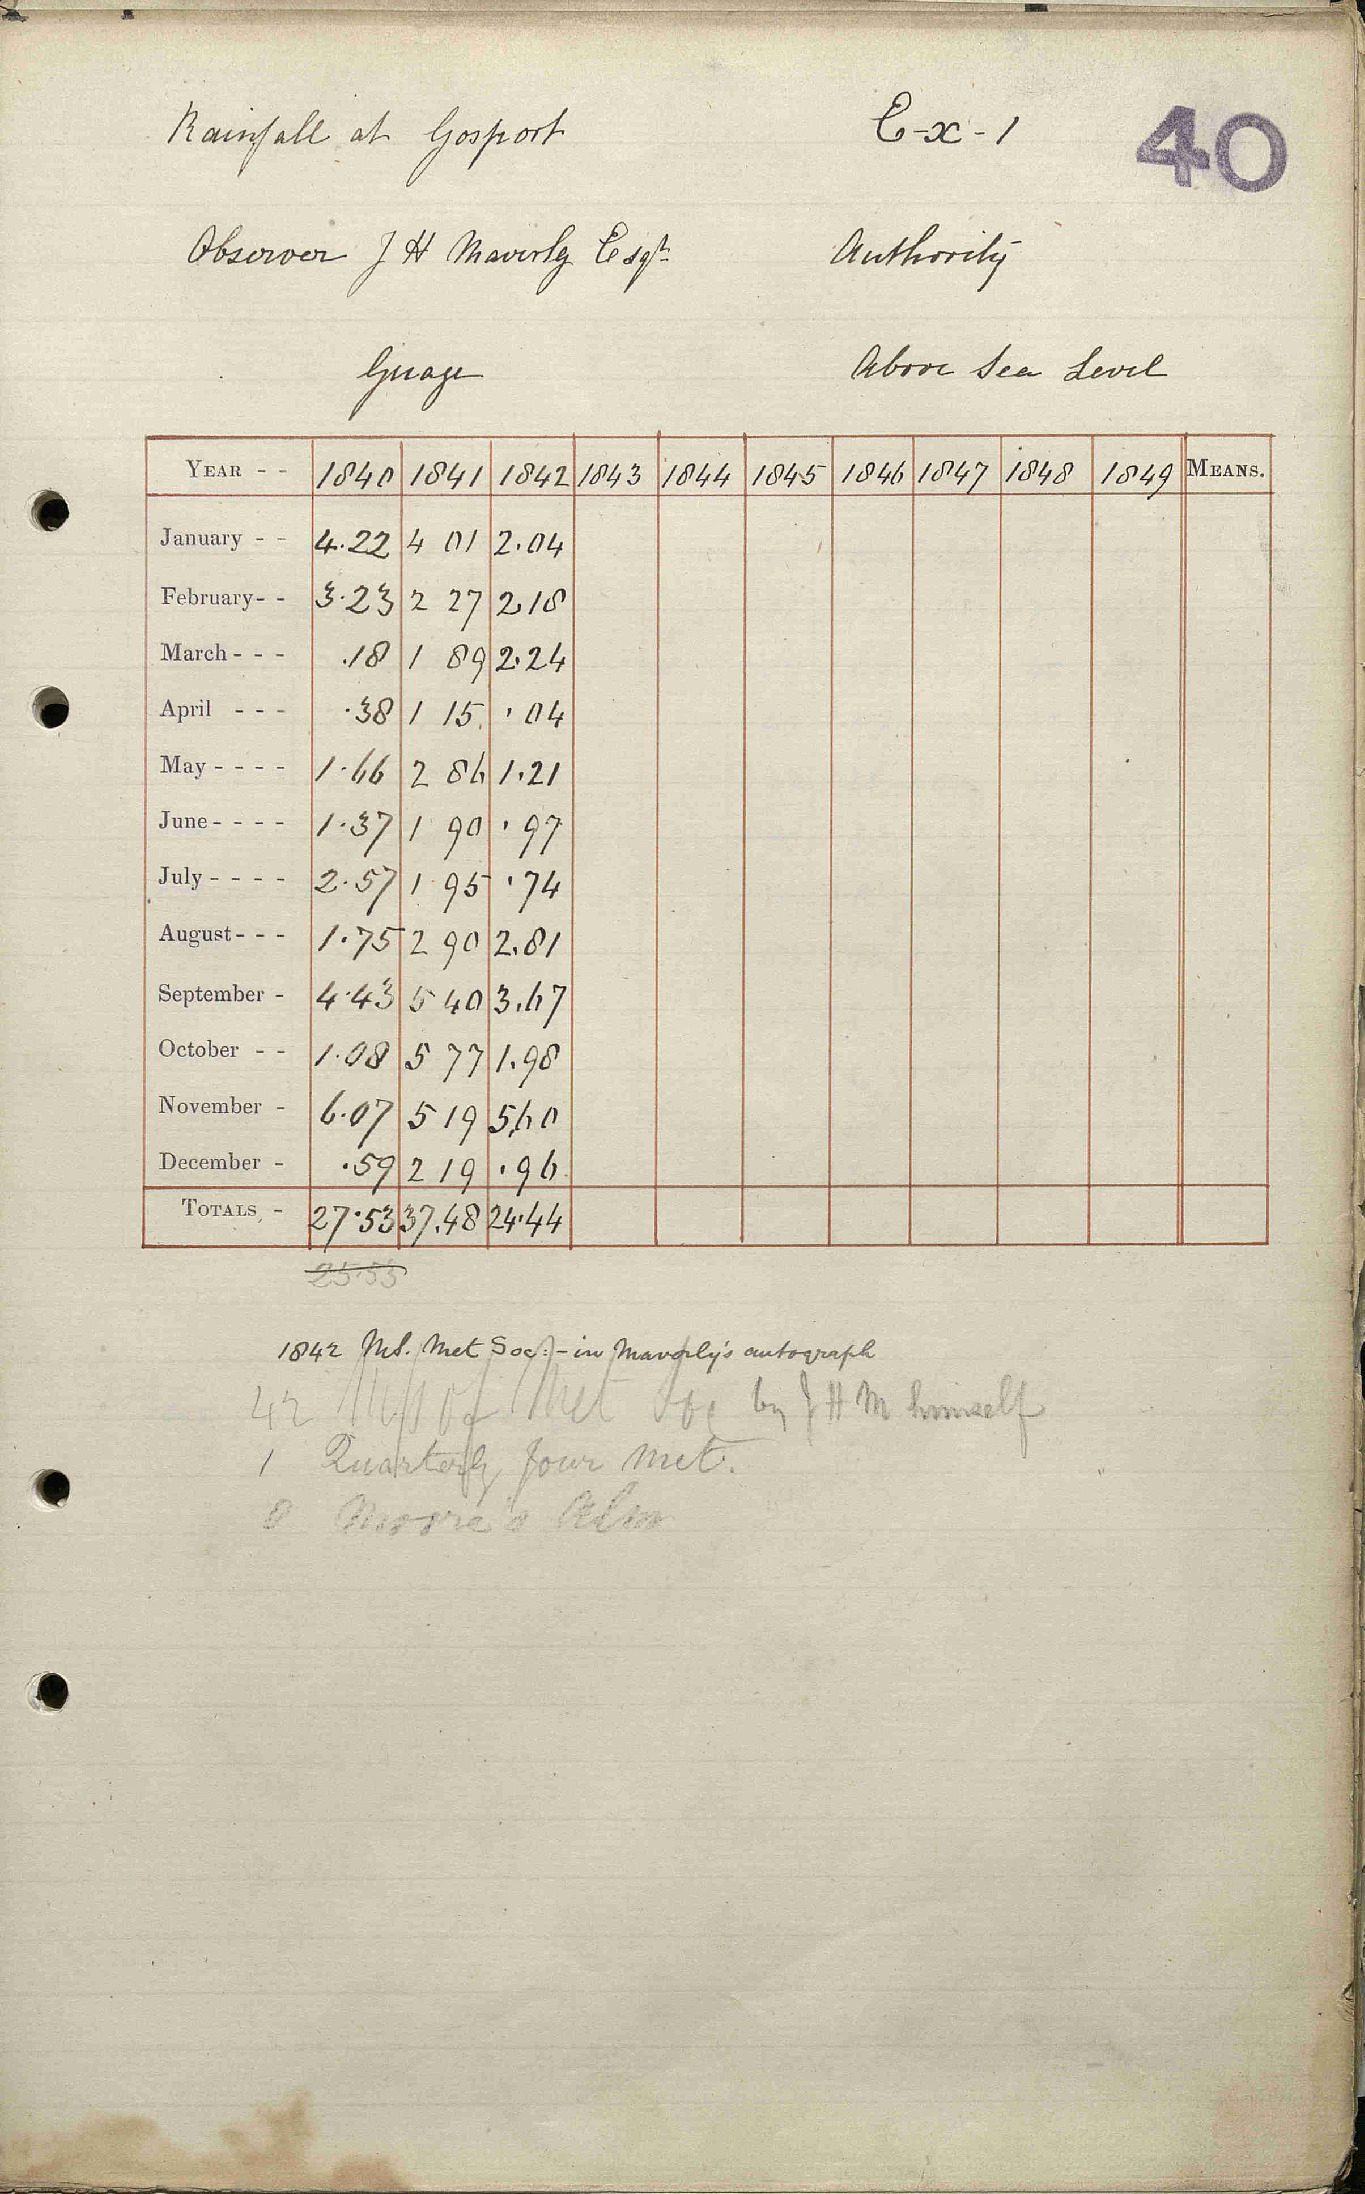 Rainfall at Gosport E-x-1 40
Observer J H Maverly Esqr. Authority
Guage Above Sea Level
YEAR - - 1840 1841 1842 1843 1844 1845 1846 1847 1848 1849 MEANS.
January - - 4.22 4 01 2.04
February - - 3.23 2 27 2.18
March - - - .18 1 89 2.24
April - - - .38 1 15 .04
May - - - - 1.66 2 86 1.21
June - - - - 1.37 1 90 .97
July - - - - 2.57 1 95 .74
August - - - 1.75 2 90 2.81
September - 4.43 5 40 3.67
October - - 1.08 5 77 1.98
November - 6.07 5 19 5.60
December - .59 2 19 .96
TOTALS - 27.53 37.48 24.44
25.53
1842 MS. Met Soc. - in Maverly's autograph
42 MSS of Met Soc by J H M himself
1 Quarterly Jour Met.
0 Moore's Alm